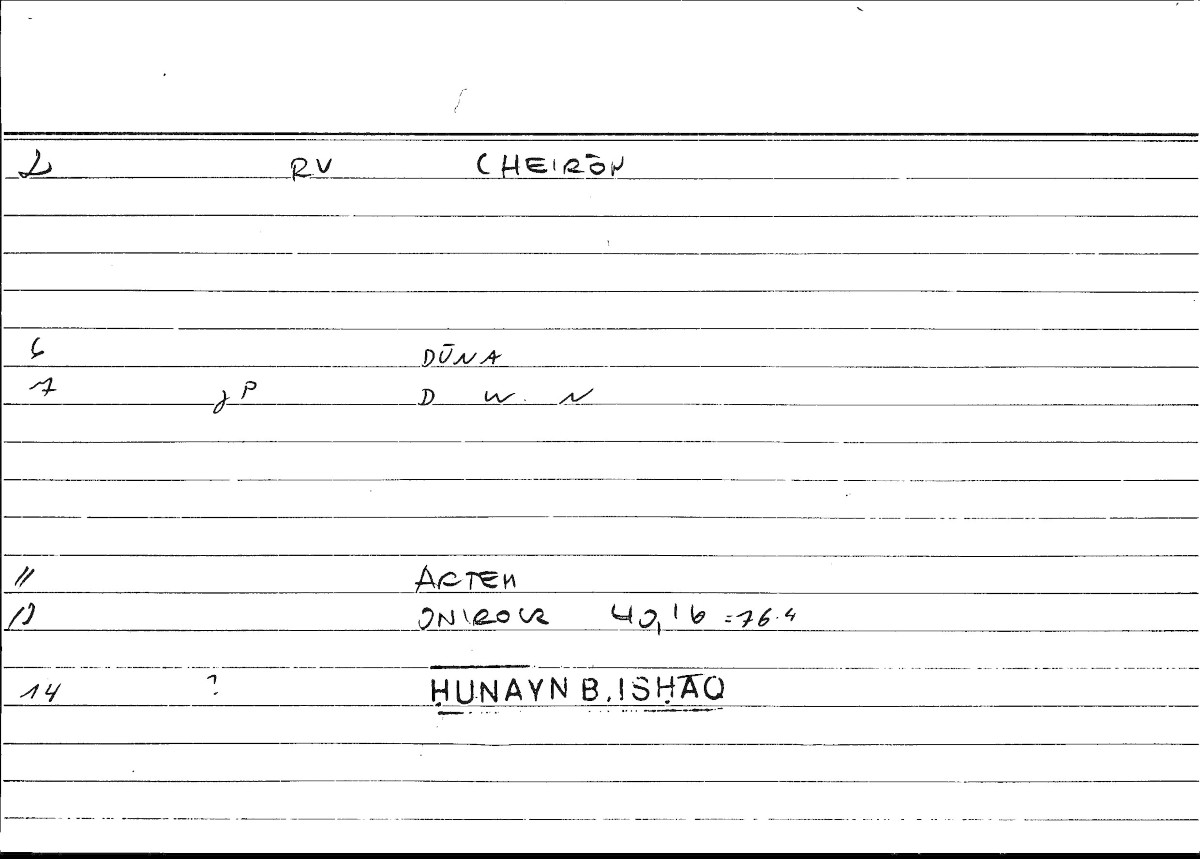 2 RV CHEIRŌN
6 DŪNA
7 jP D W. N
11 ARTEM
12 ONIROCR 40,16 =76.4
14 ? ḤUNAYN B. ISḤĀQ